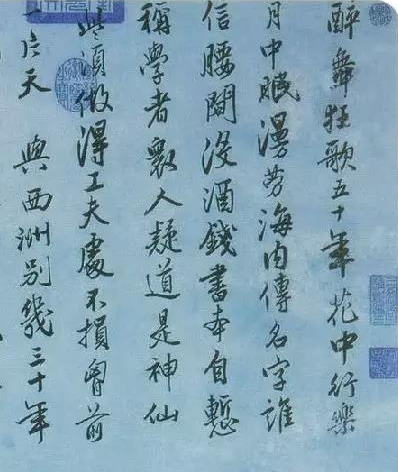 醉舞狂歌五十年花中行樂
月中眠漫勞海內傳名字誰
信腰間沒酒錢書本自慙
稱學者衆人疑道是神仙
些須做得工夫處不損胷前
一片天 與西洲別幾三十年